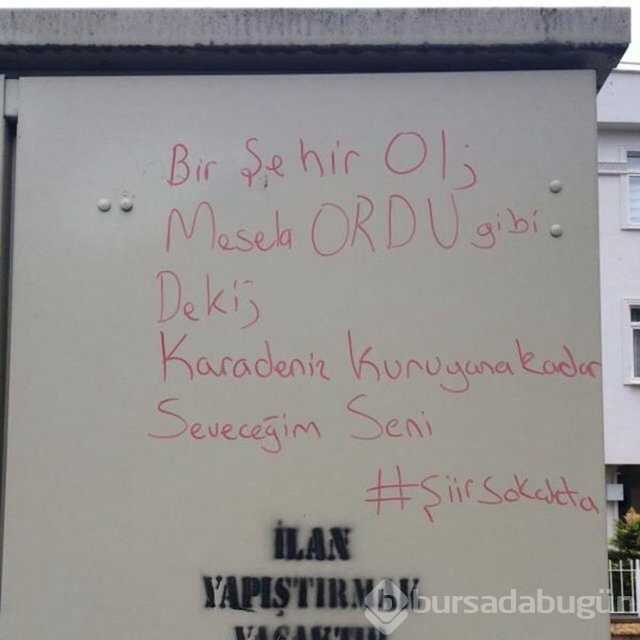 Bir Şehir Ol;
Mesela ORDU gibi
Deki;
Karadeniz Kuruyana kadar
Seveceğim Seni
#şiirsokakta
İLAN
YAPIŞTIRMAK
YASAKTIR
bursadabugün